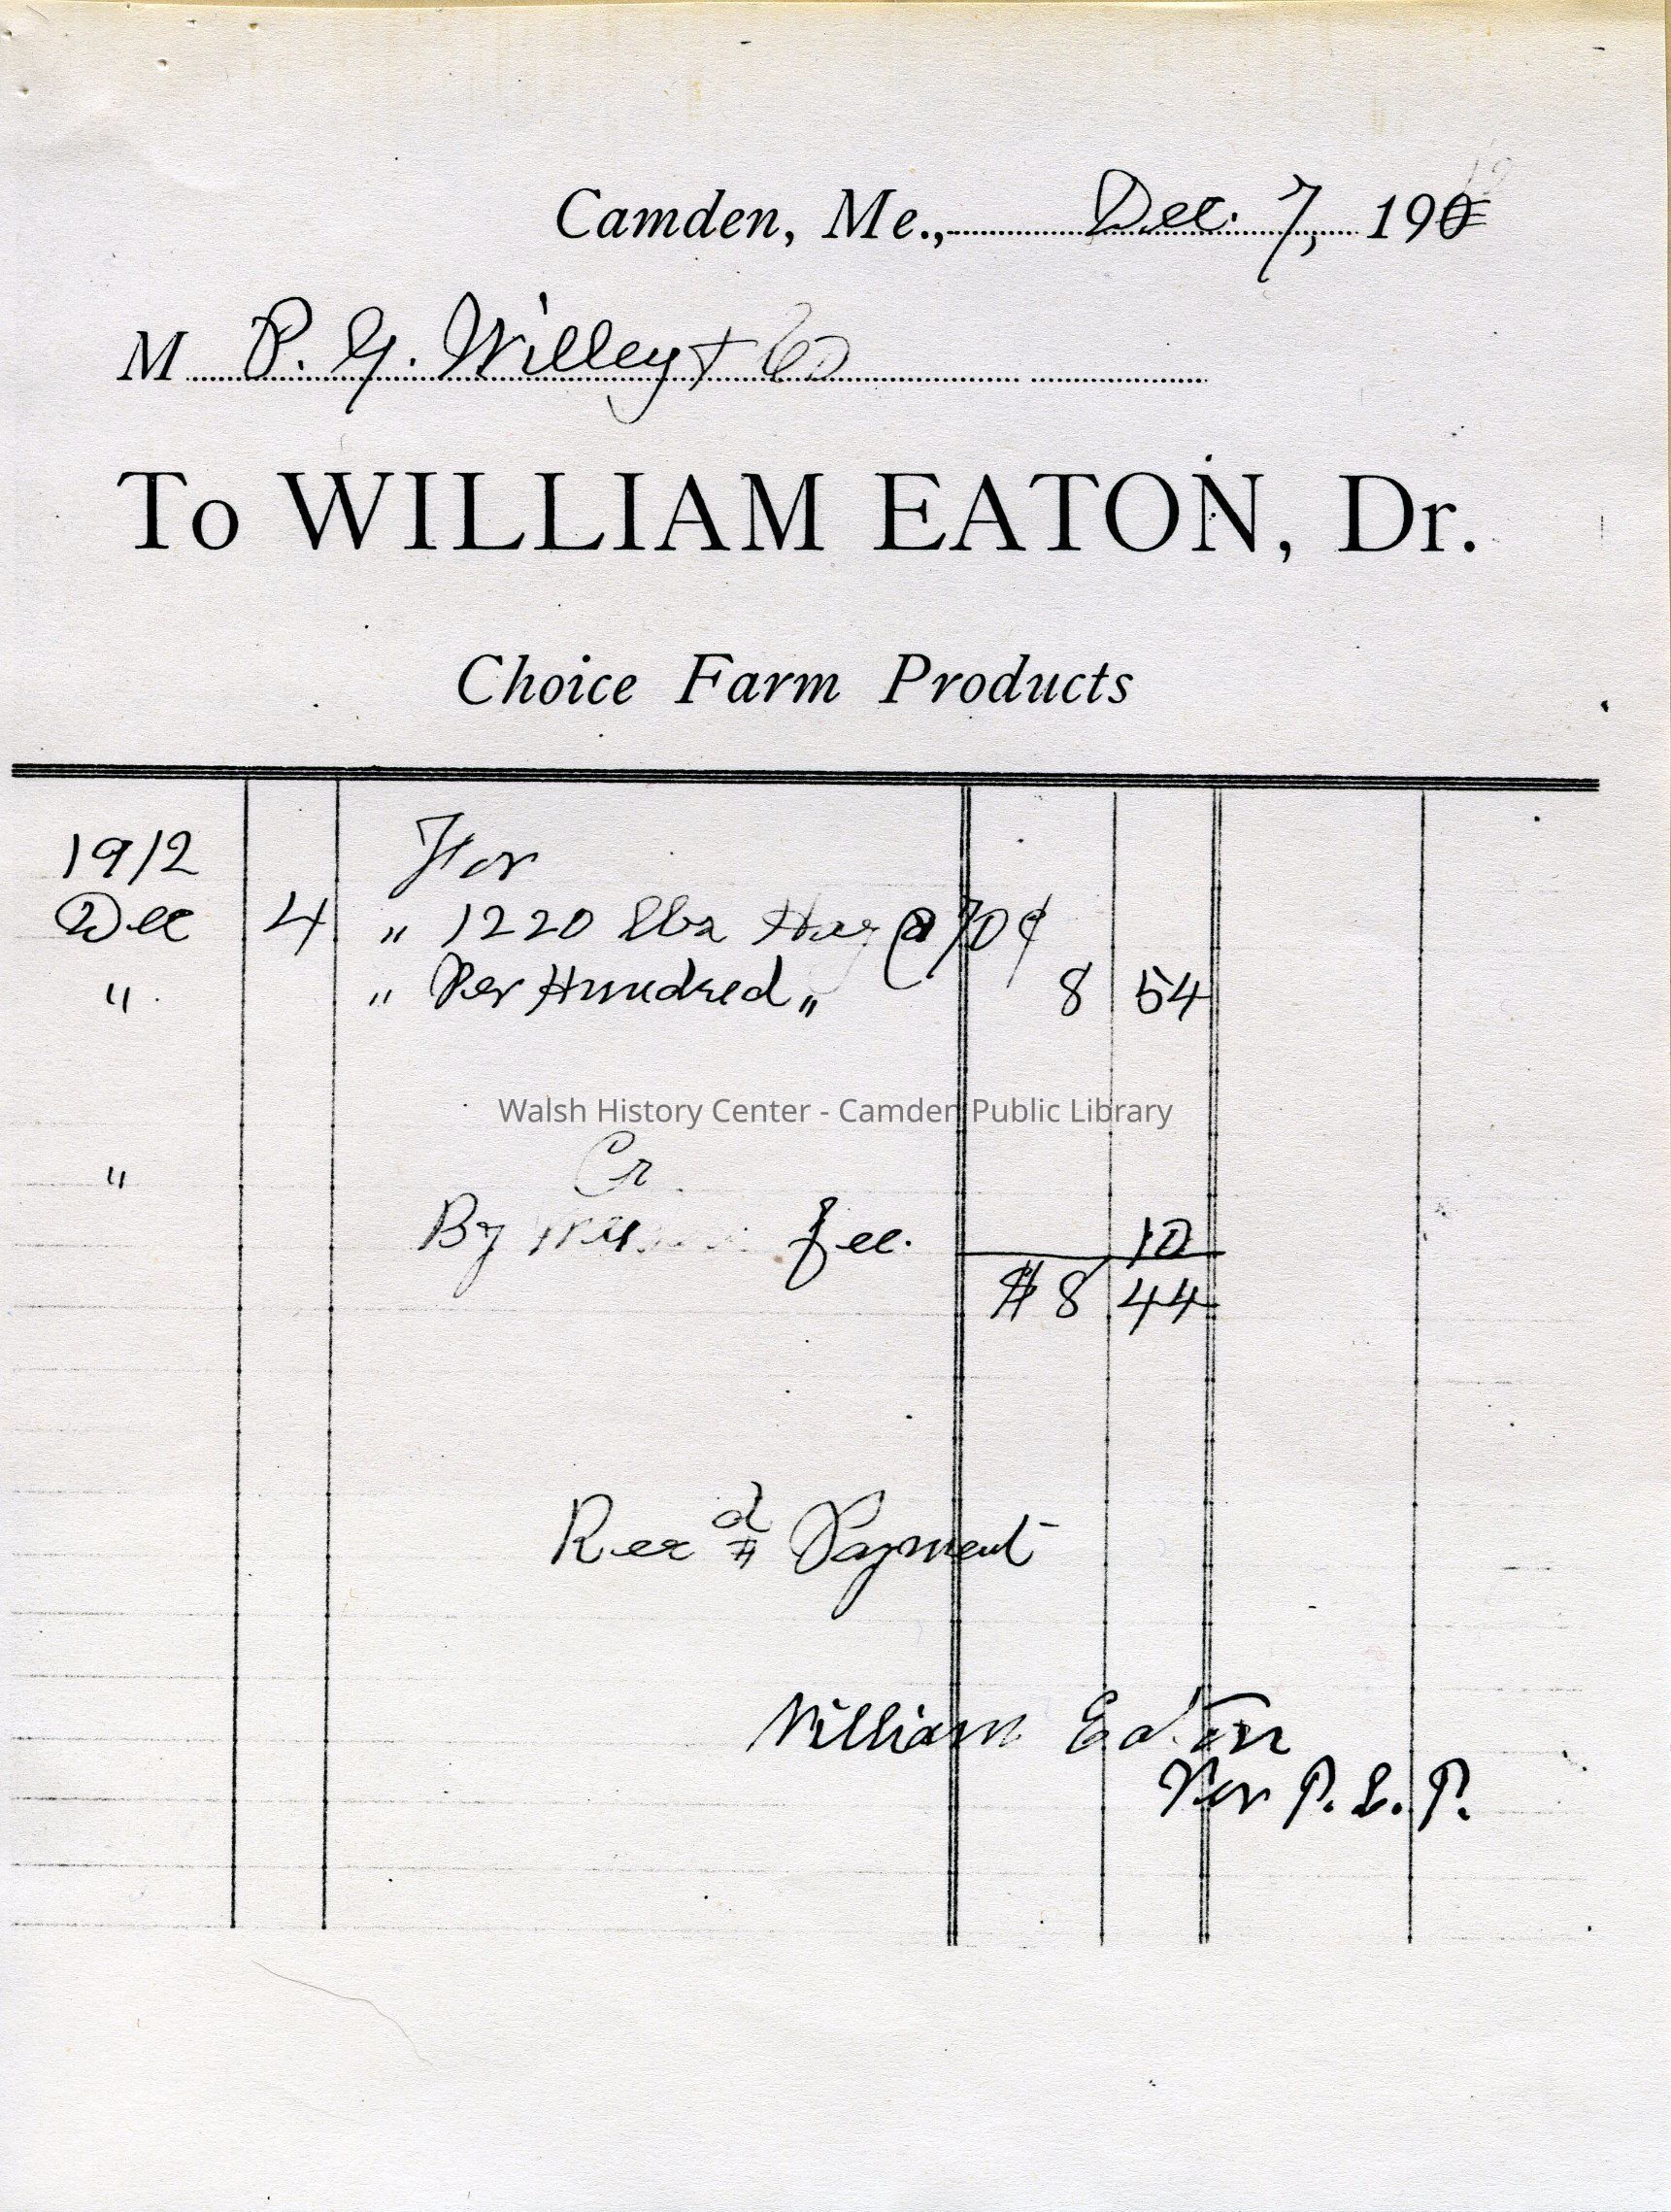 Camden, Me., Dec. 7, 190
M P. G. Willey & Co
To WILLIAM EATON, Dr.
Choice Farm Products
1912 For
Dec 4 " 1220 lbs Hay @ 70¢
" " Per Hundred " 8 54
Walsh History Center - Camden Public Library
" Cr
By fee. 10
$8 44
Rec'd Payment
William Eaton
Per P. L. P.